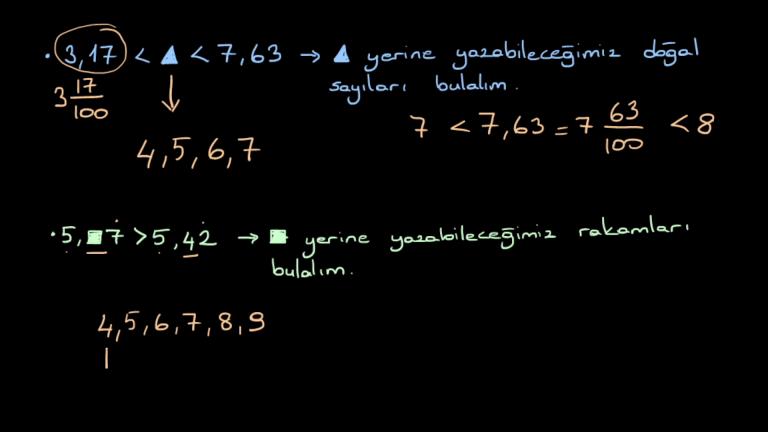 · 3,17 < ▲ < 7,63 → ▲ yerine yazabileceğimiz doğal
sayıları bulalım.
3 17/100
7 < 7,63 = 7 63/100 < 8
4, 5, 6, 7
· 5,■7 > 5,42 → ■ yerine yazabileceğimiz rakamları
bulalım.
4, 5, 6, 7, 8, 9